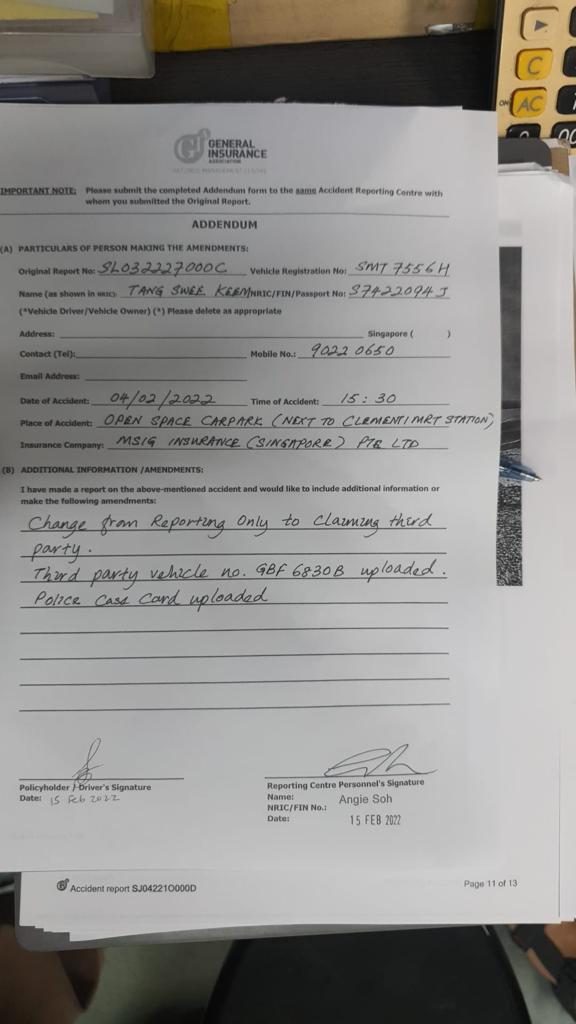 GENERAL
INSURANCE
ASSOCIATION
IMPORTANT NOTE: Please submit the completed Addendum form to the same Accident Reporting Centre with
whom you submitted the Original Report.
ADDENDUM
(A) PARTICULARS OF PERSON MAKING THE AMENDMENTS:
Original Report No: SL032227000C Vehicle Registration No: SMT 7556H
Name (as shown in NRIC): TANG SWEE KEEM NRIC/FIN/Passport No: S7422094J
(*Vehicle Driver/Vehicle Owner) (*) Please delete as appropriate
Address: Singapore ( )
Contact (Tel): Mobile No.: 9022 0650
Email Address:
Date of Accident: 04/02/2022 Time of Accident: 15:30
Place of Accident: OPEN SPACE CARPARK (NEXT TO CLEMENTI MRT STATION)
Insurance Company: MSIG INSURANCE (SINGAPORE) PTE LTD
(B) ADDITIONAL INFORMATION /AMENDMENTS:
I have made a report on the above-mentioned accident and would like to include additional information or
make the following amendments:
Change from Reporting Only to Claiming third
party.
Third party vehicle no. GBF 6830B uploaded.
Police Case Card uploaded
Policyholder / Driver's Signature
Date: 15 Feb 2022
Reporting Centre Personnel's Signature
Name: Angie Soh
NRIC/FIN No.:
Date: 15 FEB 2022
Accident report SJ04221O000D
Page 11 of 13
C
ON AC